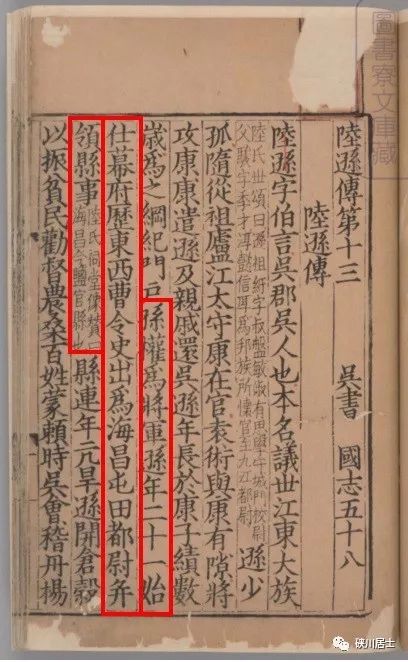 陸遜傳第十三 吳書 國志五十八
陸遜傳
陸遜字伯言吳郡吳人也本名議世江東大族
陸氏世頌曰遜祖紆字叔盤敏淑有思學守城門校尉
父駿字季才淳懿信厚爲邦族所懷官至九江都尉
遜少
孤隨從祖廬江太守康在官袁術與康有隙將
攻康康遣遜及親戚還吳遜年長於康子績數
歲爲之綱紀門戶孫權爲將軍遜年二十一始
仕幕府歷東西曹令史出爲海昌屯田都尉并
領縣事
陸氏祠堂像贊曰
海昌今鹽官縣也
縣連年亢旱遜開倉穀
以振貧民勸督農桑百姓蒙賴時吳會稽丹楊
圖書寮文庫藏
硤川居士